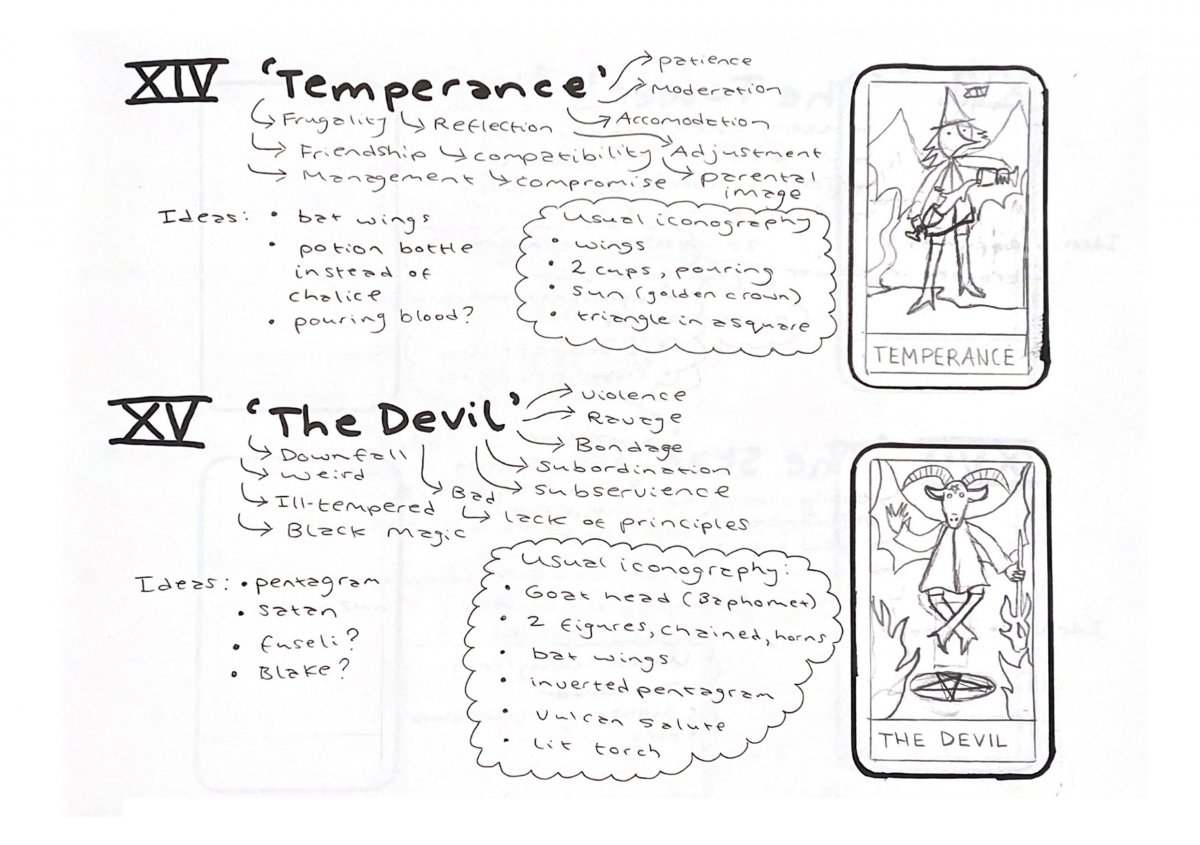 XIV 'Temperance'
patience
Moderation
Frugality Reflection Accomodation
Friendship compatibility Adjustment
Management compromise parental
image
Ideas: • bat wings
• potion bottle
instead of
chalice
• pouring blood?
Usual iconography
• wings
• 2 cups, pouring
• Sun (golden crown)
• triangle in a square
XIV
TEMPERANCE
XV 'The Devil'
Violence
Ravage
Bondage
Downfall
Weird
Ill-tempered
Black Magic
Bad
Subordination
Subservience
Lack of principles
Ideas: • pentagram
• Satan
• Fuseli?
• Blake?
Usual iconography:
• Goat head (Baphomet)
• 2 figures, chained, horns
• bat wings
• inverted pentagram
• Vulcan Salute
• Lit torch
THE DEVIL